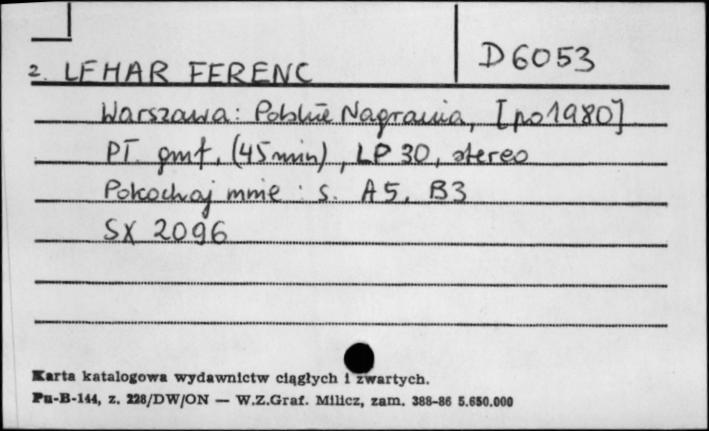 D 6053
2. LEHAR FERENC
Warszawa: Polskie Nagrania, [po 1980]
PŁ. gmf. (45 min), LP 30, stereo
Pokochaj mnie : s. A5, B3
SX 2096
Karta katalogowa wydawnictw ciągłych i zwartych.
Pu-B-144, z. 228/DW/ON — W.Z.Graf. Milicz, zam. 388-86 5.650.000